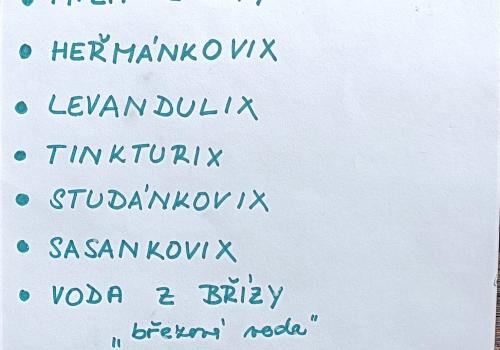 • HEŘMÁNKOVIX
• LEVANDULIX
• TINKTURIX
• STUDÁNKOVIX
• SASANKOVIX
• VODA Z BŘÍZY
„březoví voda"